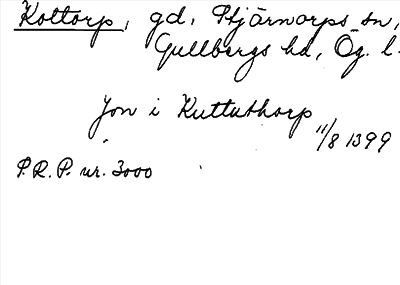 Koltorp, gd, Stjärnorps sn,
Gullbergs hd, Ög. l.
Jon i Kuttusthorp
11/8 1399
P.R.P. nr. 3000